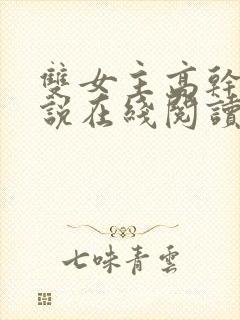 雙女主高幹
說在綫閱讀
七味青雲